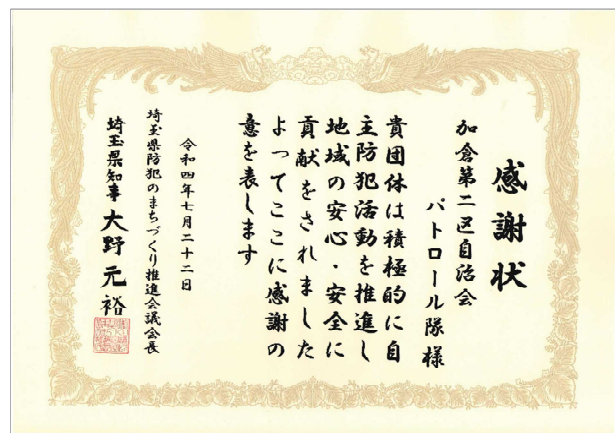 感謝状
加倉第二区自治会
パトロール隊様
貴団体は積極的に自
主防犯活動を推進し
地域の安心・安全に
貢献をされました
よってここに感謝の
意を表します
令和四年七月二十二日
埼玉県防犯のまちづくり推進会議会長
埼玉県知事 大野元裕